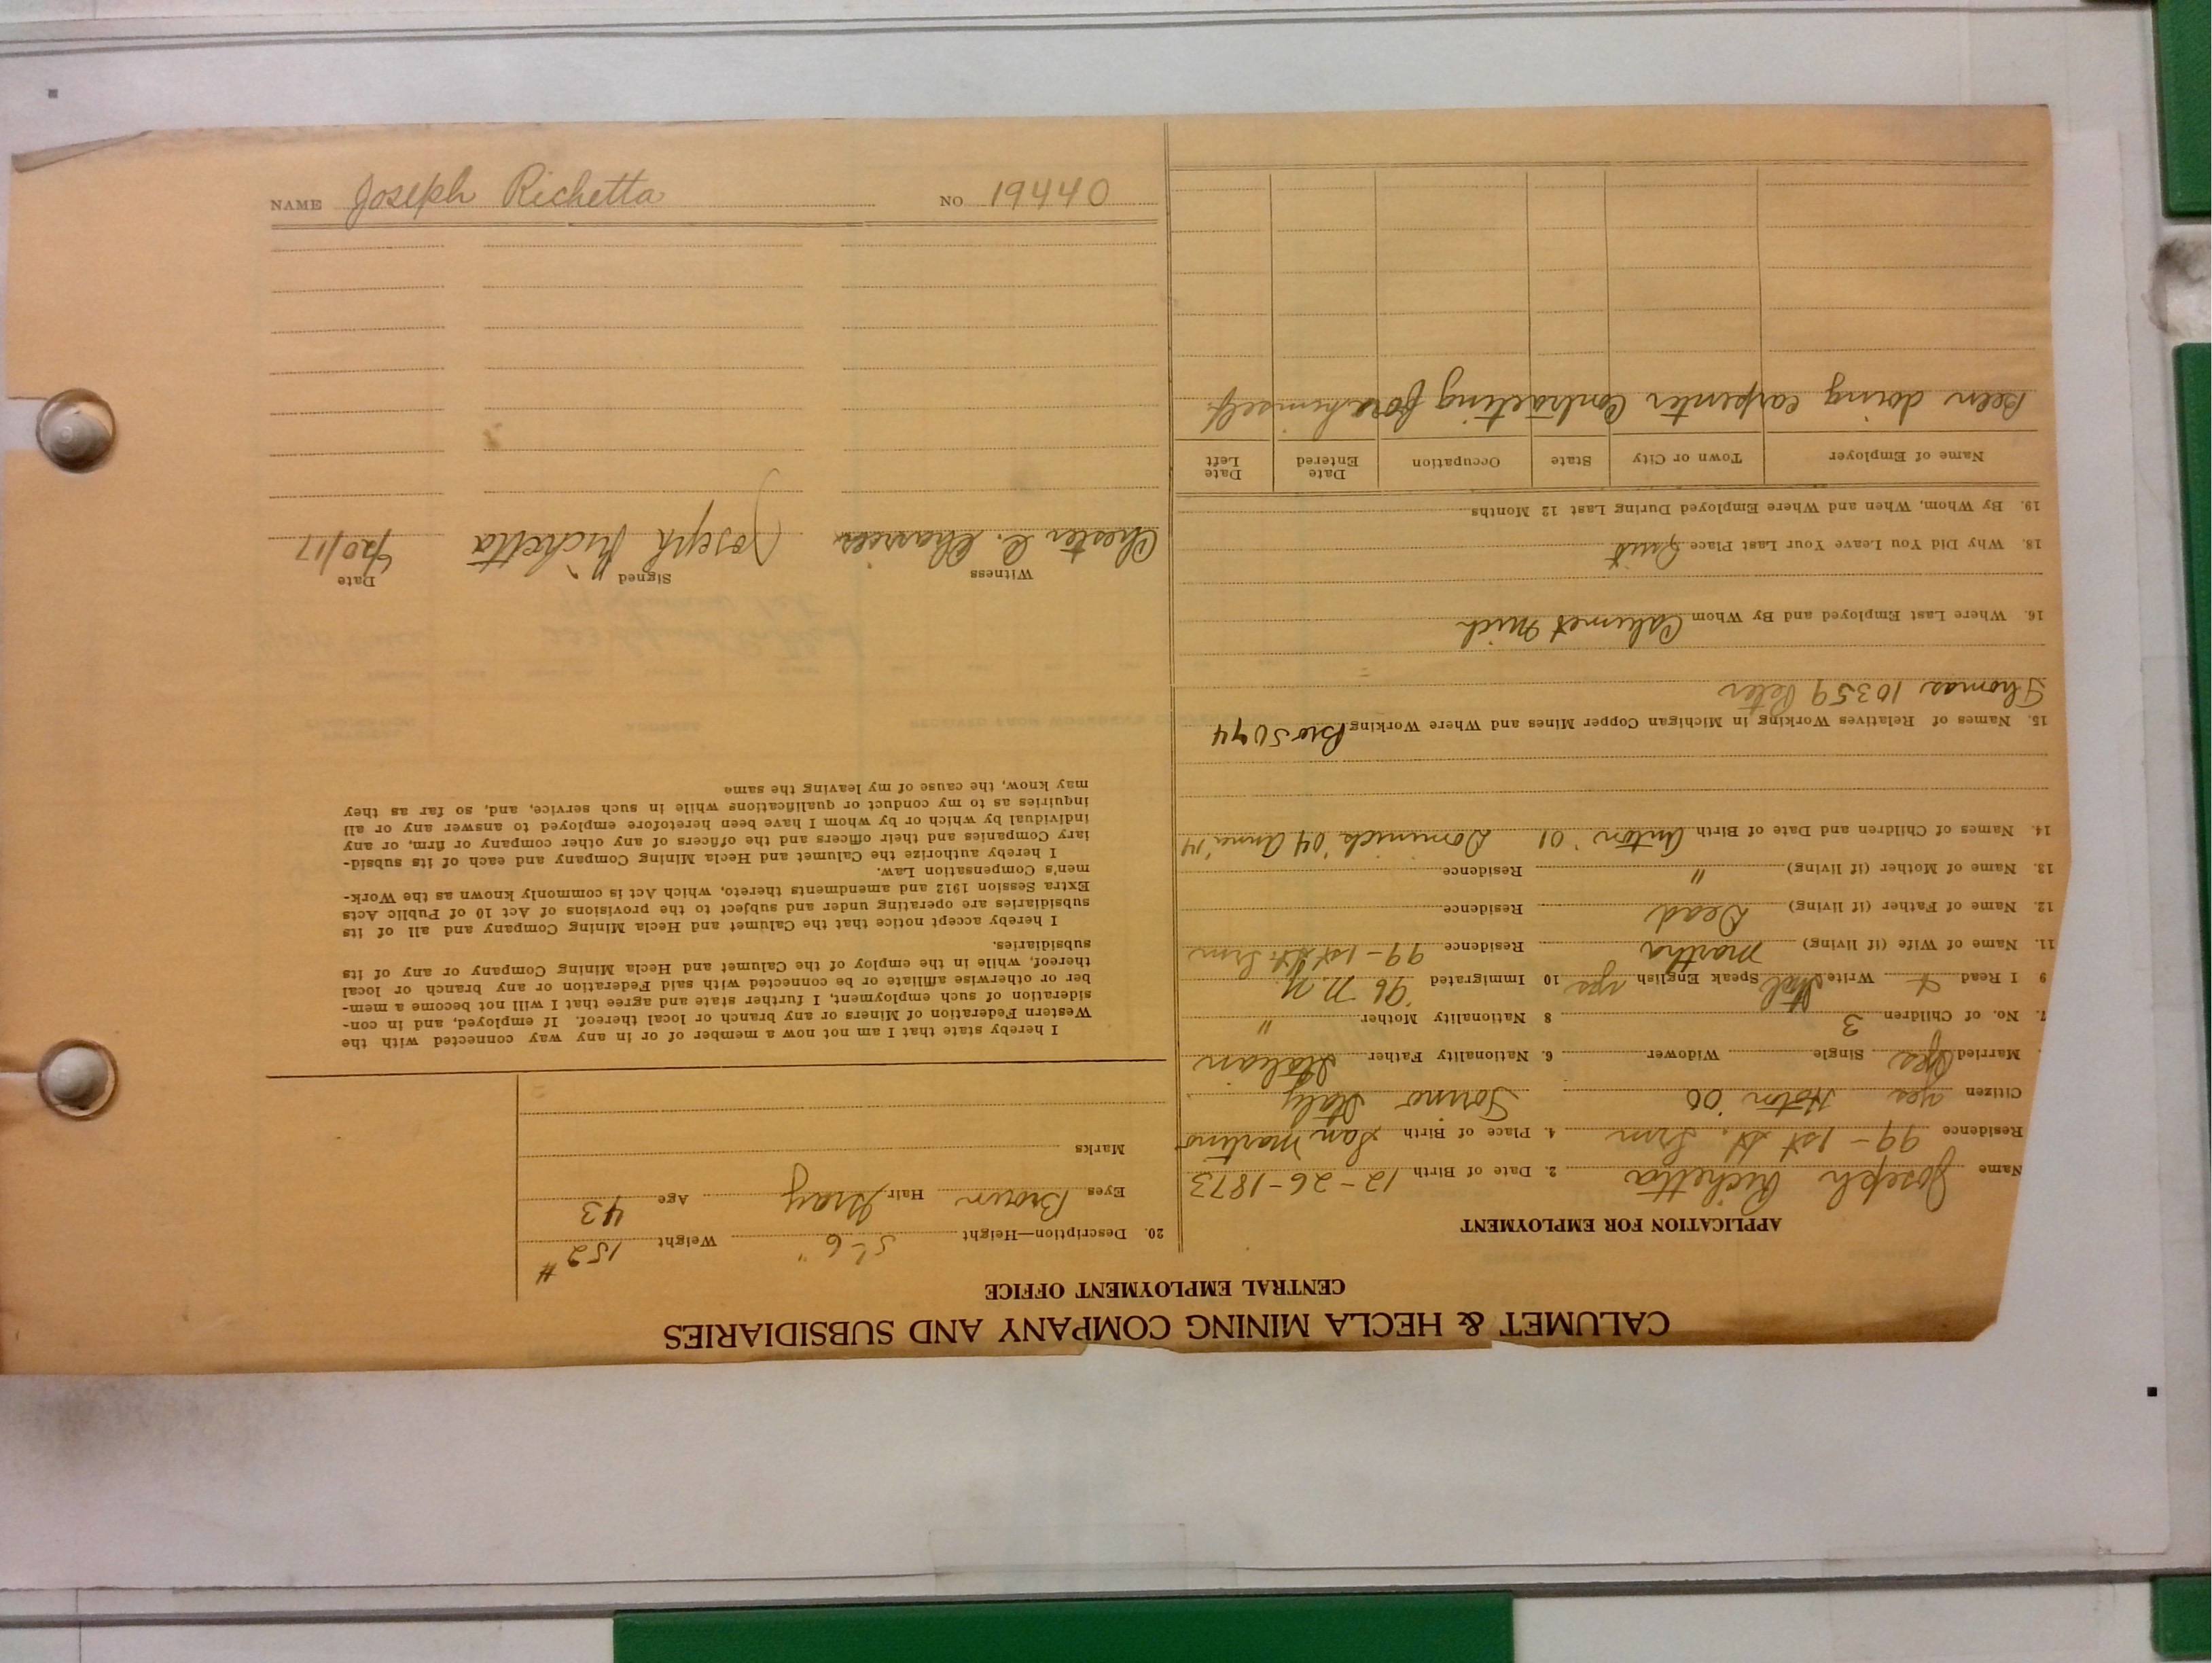 CALUMET & HECLA MINING COMPANY AND SUBSIDIARIES
CENTRAL EMPLOYMENT OFFICE
APPLICATION FOR EMPLOYMENT
Name Joseph Richetta 2. Date of Birth 12-26-1873
Residence 99-1st St. Lrm 4. Place of Birth San Martino
Citizen yes Hoton '00 Torino Italy
Married yes Single Widower 6. Nationality Father Italian
7. No. of Children 3 8 Nationality Mother "
9 I Read & Write Ital Speak English yes 10 Immigrated '96 N.Y.
11. Name of Wife (if living) Martha Residence 99-1st St Lrm
12. Name of Father (if living) Dead Residence
13. Name of Mother (if living) " Residence
14. Names of Children and Date of Birth Anton '01 Dominick '04 Anna '14
15. Names of Relatives Working in Michigan Copper Mines and Where Working Bro 5094
Thomas 10359 Peter
16. Where Last Employed and By Whom Calumet Mich
18. Why Did You Leave Your Last Place Quit
19. By Whom, When and Where Employed During Last 12 Months
Name of Employer Town or City State Occupation Date Entered Date Left
Been doing carpenter contracting for himself
20. Description—Height 5'-6" Weight 152#
Eyes Brown Hair Gray Age 43
Marks
I hereby state that I am not now a member of or in any way connected with the
Western Federation of Miners or any branch or local thereof. If employed, and in con-
sideration of such employment, I further state and agree that I will not become a mem-
ber or otherwise affiliate or be connected with said Federation or any branch or local
thereof, while in the employ of the Calumet and Hecla Mining Company or any of its
subsidiaries.
I hereby accept notice that the Calumet and Hecla Mining Company and all of its
subsidiaries are operating under and subject to the provisions of Act 10 of Public Acts
Extra Session 1912 and amendments thereto, which Act is commonly known as the Work-
men's Compensation Law.
I hereby authorize the Calumet and Hecla Mining Company and each of its subsid-
iary Companies and their officers and the officers of any other company or firm, or any
individual by which or by whom I have been heretofore employed to answer any or all
inquiries as to my conduct or qualifications while in such service, and, so far as they
may know, the cause of my leaving the same
Witness Signed Date
Chester C. Joseph Richetta 6/20/17
NAME Joseph Richetta NO 19440